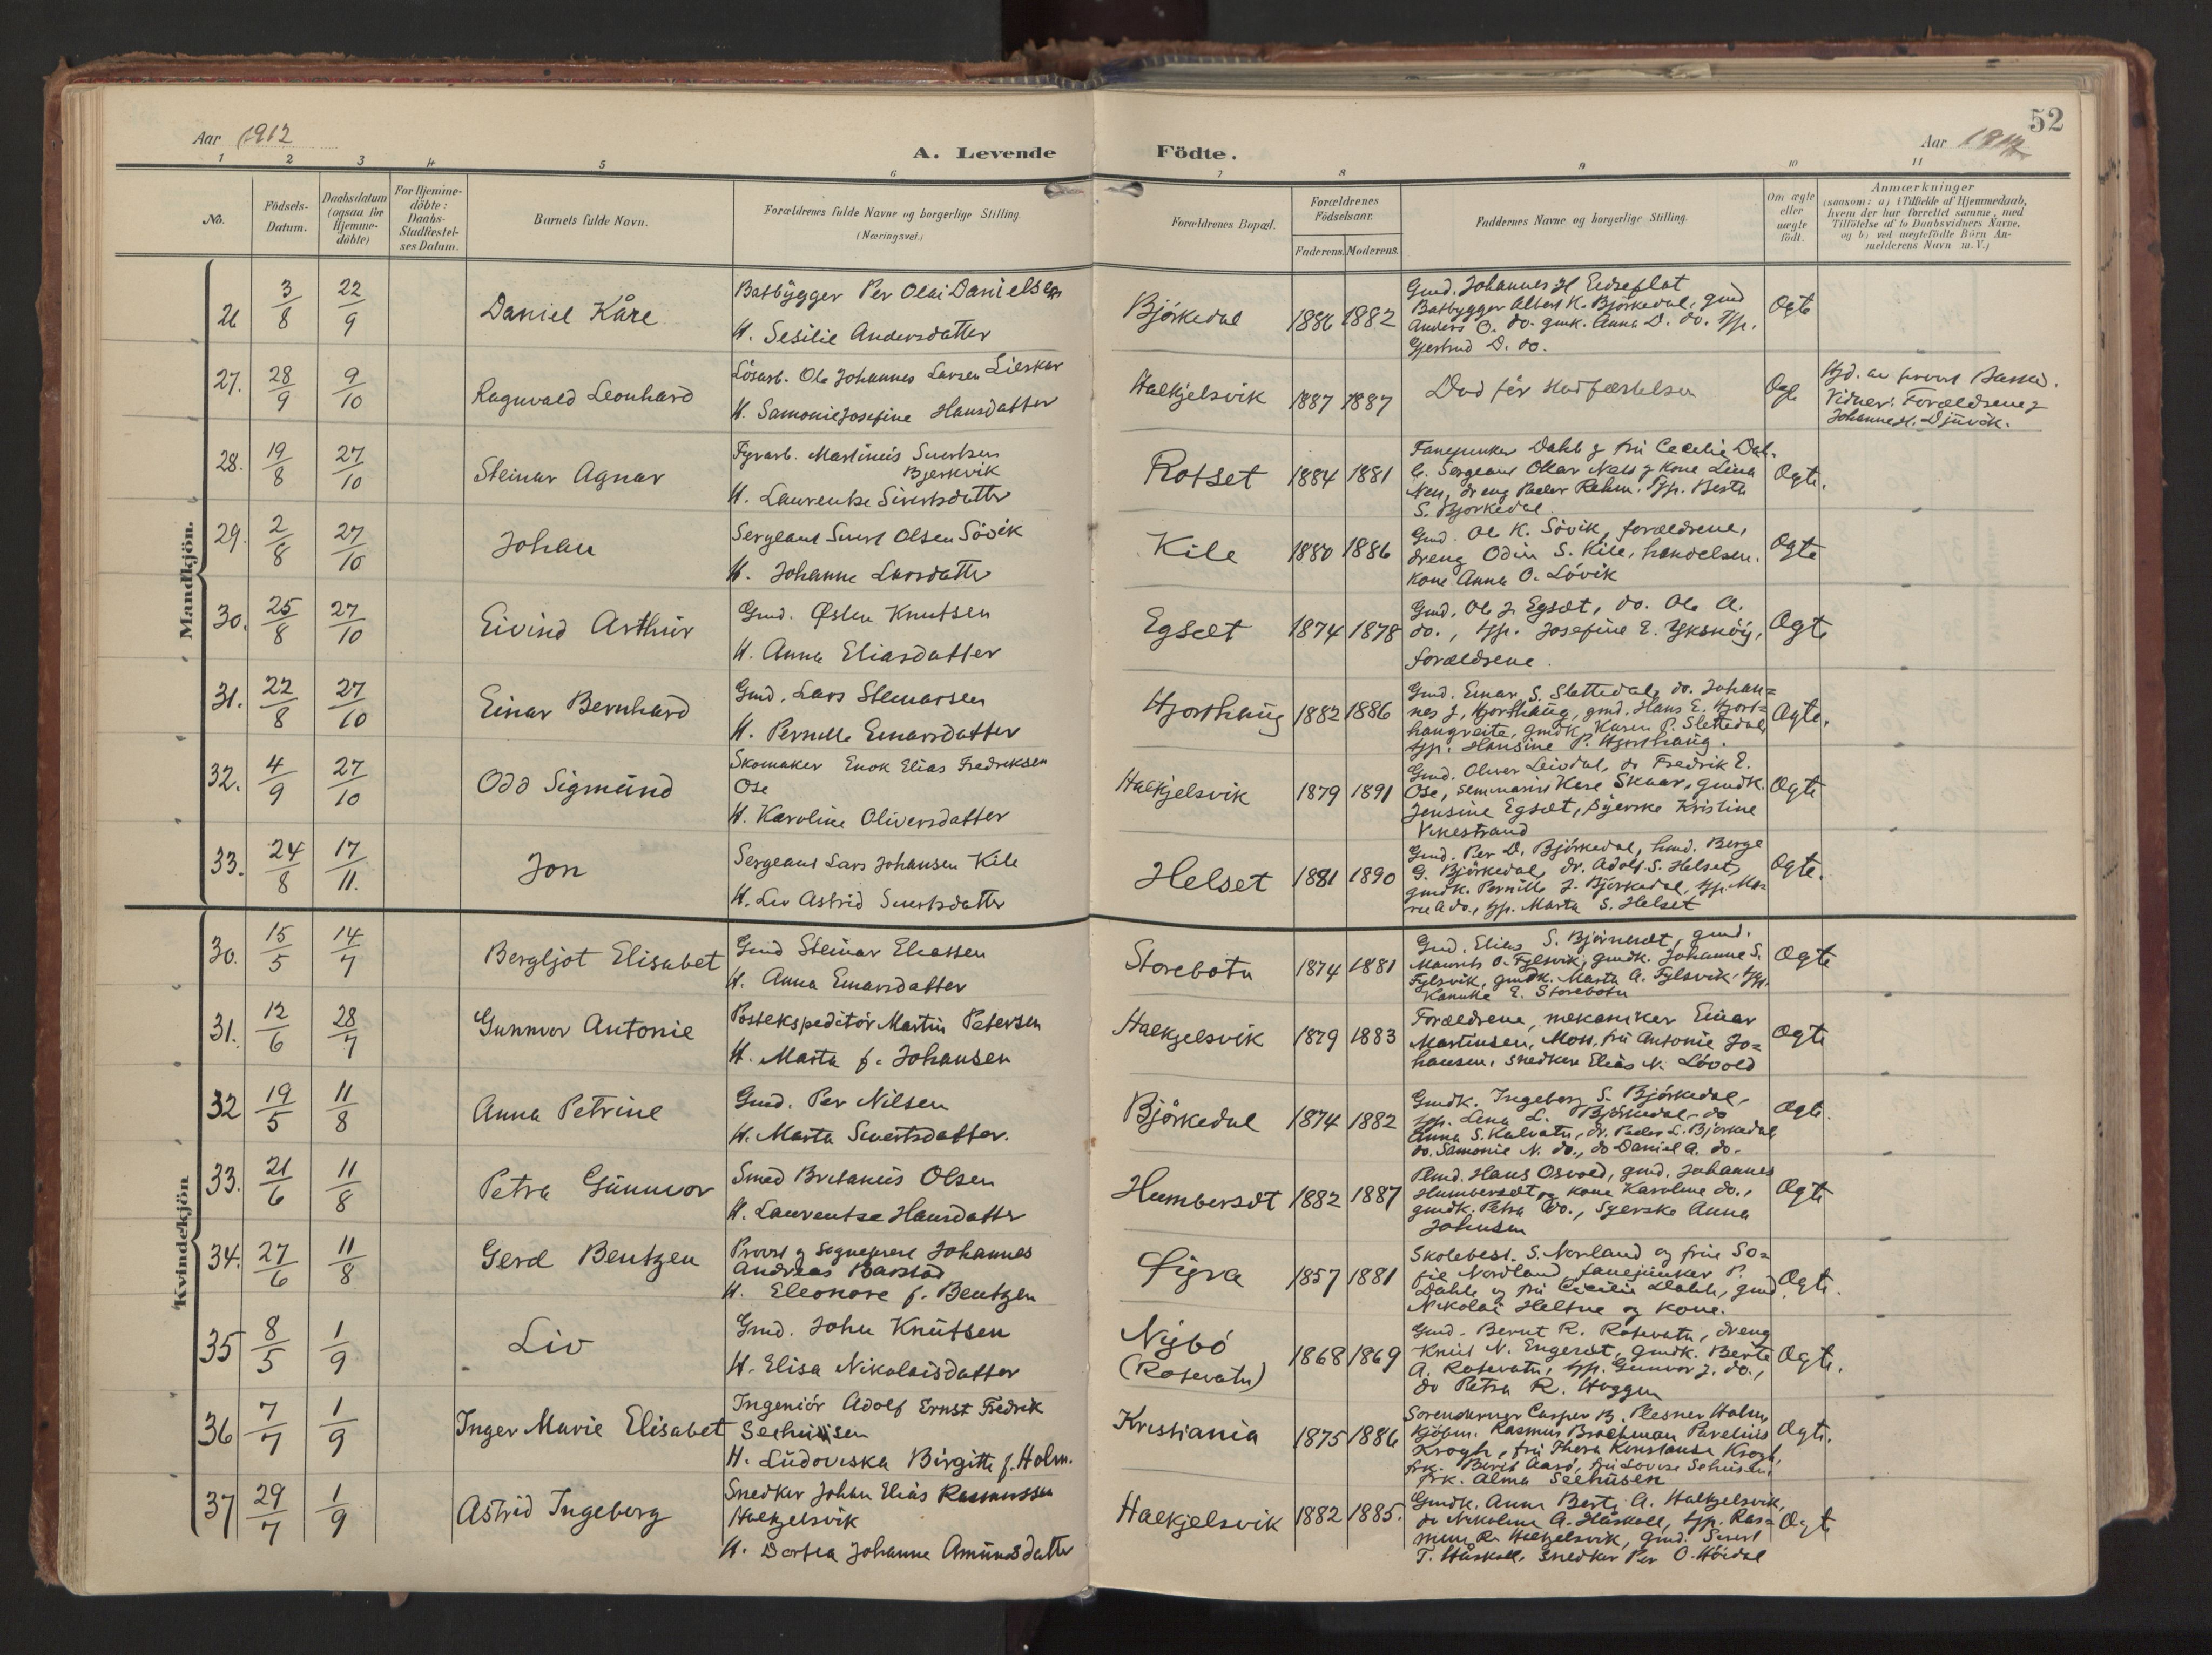 52
Aar 1912
A. Levende Födte.
Aar 1912
1 2 3 4 5 6 7 8 9 10 11
No.
Födsels-Datum.
Daabsdatum (ogsaa for Hjemme-döbte)
For Hjemme-döbte: Daabs-Stadfæstel-ses Datum.
Barnets fulde Navn.
Forældrenes fulde Navne og borgerlige Stilling. (Næringsvei.)
Forældrenes Bopæl.
Forældrenes Födselsaar.
Faderens. Moderens.
Faddernes Navne og borgerlige Stilling.
Om ægte eller uægte födt.
Anmærkninger (saasom: a) i Tilfælde af Hjemmedaab, hvem der har forrettet samme, med Tilföielse af to Daabsvidners Navne, og b) ved uægtefödte Börn An-melderens Navn m. V.)
Mandkjön.
26 3/8 22/9 Daniel Kåre
Batbygger Per Olai Danielsen
H. Sesilie Andersdatter
Björkedal 1886 1882
Gmd. Johannes H Eidseflat
Batbygger Albert K. Björkedal, gmd
Anders O. do. gmk. Anna D. do. Pp.
Gjertrud D. do.
Ogte
27. 28/9 9/10 Ragnvald Leonhard
Lösarb. Ole Johannes Larsen Lieskar
H. Samonie Josefine Hansdatter
Halkjelsvik 1887 1887
Död för stadfæstelsen
Ogte
Vidner: Forældrene &
Johannes H. Djuvik.
28. 19/8 27/10 Steinar Agnar
Fyrarb. Martinus Sivertsen
Bjerkvik
H. Laurentse Sivertsdatter
Rotset 1884 1881
Fanejunker Dahle & fru Cecilie Dah-
le. Sergeant Oskar Ness & Kone Lina
S. Bjorkedal.
Ogte.
29. 2/8 27/10 Johan
Sergeant Sivert Olsen Sövik
H. Johanne Larsdatter
Kile 1880 1886
Gmd. Ole K. Sövik, forældrene,
dreng Odin S. Kile, handelsm.
Kone Anna O. Lövik
Ogte
30. 25/8 27/10 Eivind Arthur
Gmd. Østen Knutsen
H. Anna Eliasdatter
Egset 1874 1878
Gmd. Ole J. Egset, do. Ole A.
do., pp. Josefine E. Yksnöy,
forældrene.
Ogte
31. 22/8 27/10 Einar Bernhard
Gmd. Lars Steinarsen
H. Pernille Einarsdatter
Hjorthaug 1882 1886
Gmd. Einar S. Slettedal, do. Johan=
nes J. Hjorthaug, gmd. Hans E. Hjort=
haugreite, gmdk. Karen P. Slettedal,
pp. Hansine P. Hjorthaug.
Ogte.
32. 4/9 27/10 Odd Sigmund
Skomaker Enok Elias Fredriksen
Ose
H. Karoline Oliversdatter
Halkjelsvik 1879 1891
Gmd. Oliver Leivdal, do Fredrik E.
Ose, seminarist Kare Skaar, gmdk.
Jensine Egset, syerske Kristine
Vikestrand
Ogte
33. 24/8 17/11. Jon
Sergeant Lars Johansen Kile
H. Liv Astrid Sivertsdatter
Helset 1881 1890
Gmd. Per D. Björkedal, gmd. Berge
G. Björkedal, dr. Adolf S. Helset,
gmdk. Pernille J. Björkedal, pp. Ma-
rie A do., pp. Marta S. Helset
Ogte.
Kvindekjön
30. 15/5 14/7 Bergljot Elisabet
Gmd Steinar Eliassen
H. Anna Einarsdatter
Storebotn 1874 1881
Gmd. Elias S. Björneset, gmd.
Maurits O. Fylsvik, gmdk. Johanne S.
Fylsvik, gmdk. Marta A. Fylsvik, pp.
E. Storebotn
Ogte
31. 12/6 28/7 Gunnvor Antonie
Postekspeditör Martin Petersen
H. Marta f. Johansen
Halkjelsvik 1879 1883
Forældrene, mekaniker Einar
Martinsen, Moss, fru Antonie Jo=
hansen, snedker Elias N. Lövold
Ogte
32 19/5 11/8 Anna Petrine
Gmd. Per Nilsen
H. Marta Sivertsdatter.
Björkedal 1874 1882
Gmdk. Ingeborg S. Björkedal,
pp. Lena L. Björkedal, do
Anna S. Kalvatn, dr. Peder L. Bjorkedal,
do. Samonie N. do., do Daniel A. do.
Ogte.
33. 21/6 11/8 Petra Gunnvor
Smed Bretanius Olsen
H. Laurentse Hansdatter
Humberset 1882 1887
Plmd. Hans Osvold, gmd. Johannes
Humberset, & kone Karoline do.,
gmdk. Petra do., Syerske Anna
Johansen
Ogte
34. 27/6 11/8 Gerd Bentzen
Provst & Sogneprest Johannes
Andreas Barstad
H. Eleonore f. Bentzen
Øyra 1857 1881
Skolebest. S. Norland og frue So=
fie Nordland, fanejunker P.
Dahle og fru Cecilie Dahle, gmd
Nikolai Heltne og kone.
Ogte.
35 8/5 1/9 Liv
Gmd. John Knutsen
H. Elisa Nikolaisdatter
Nybö
(Rotevatn) 1868 1869
Gmd. Bernt R. Rotevatn, dreng
Knut N. Engeset, gmdk. Berte
A. Rotevatn, pp. Gunvor J. do.,
do Petra R. Heggen
Ogte.
36 7/7 1/9 Inger Marie Elisabet
Ingeniör Adolf Ernst Fredrik
Seehusen
H. Ludoviska Birgitte f. Holm.
Kristiania 1875 1886
Sorenskriver Casper B. Plesner Holm,
Kjöbm. Rasmus Brochman Parelius
Krogh, fru Thora Konstanse Krogh,
frk. Berit Aarö, fru Lovise Sehusen,
frk. Alma Seehusen
Ogte.
37 29/7 1/9 Astrid Ingeborg
Snedker Johan Elias Rasmussen
Halkjelsvik
H. Dortea Johanne Amundsdatter
Halkjelsvik 1882 1885.
Gmdk. Anne Berte A. Halkjelsvik,
do Nikoline A. Håskoll, pp. Ras=
mine R. Halkjelsvik, gmd. Sivert
T. Håskoll, snedker Per O. Höidal
Ogte